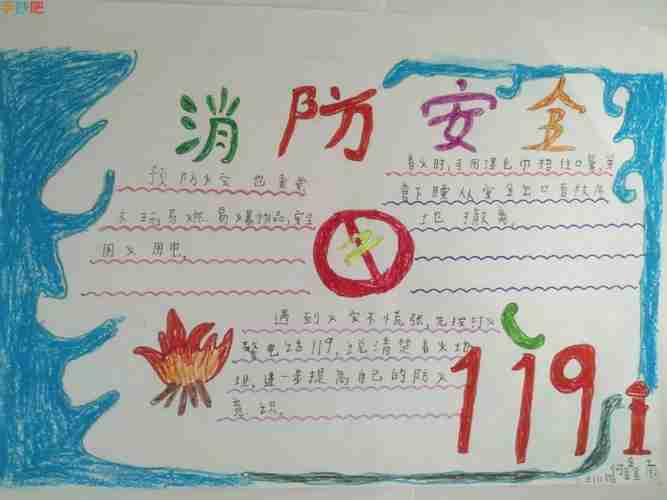 手抄吧
消防安全
预防火灾也重要
不玩易燃易爆物品,安全
用火用电。
着火时,要用湿毛巾捂住口鼻,弯
着下腰从安全出口有秩序
地撤离。
遇到火灾不慌张,先拨打火
警电话119,说清楚着火地
址,进一步提高自己的防火
意识。
119